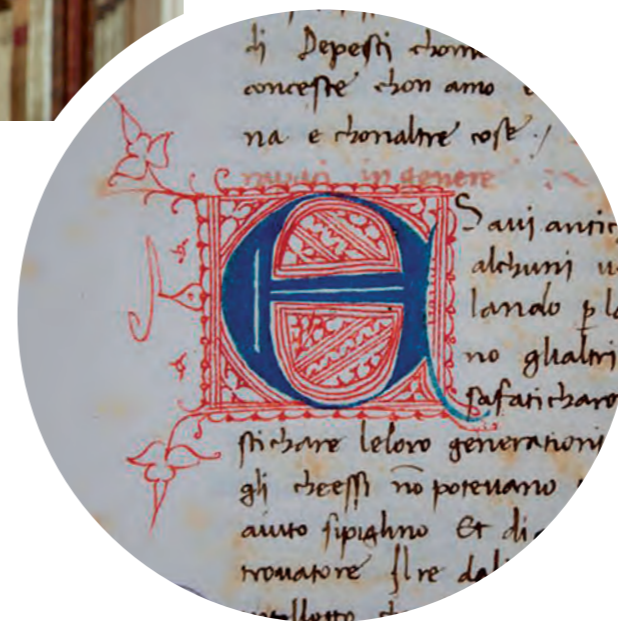 di Depesti chom
conceste chon amo e
na e chonaltre cose
in genere
A
Saui antich
alchuni u
lando p la
no ghaltri
safaticharo
stichare leloro generationi
gli cheessi nō poteuano
aiuto sipiglino Et di
trouatore Il re dal